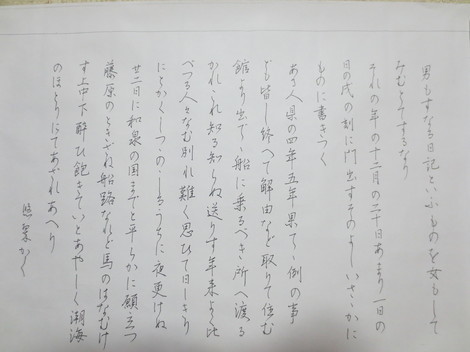 男もすなる日記といふものを女もして
みむとてするなり
それの年の十二月の二十日あまり一日の
日の戌の刻に門出すそのよしいささかに
ものに書きつく
ある人県の四年五年果てゝ例の事
ども皆し終へて解由など取りて住む
館より出でゝ船に乗るべき所へ渡る
かれこれ知る知らぬ送りす年来よく比
べつる人々なむ別れ難く思ひて日しきり
にとかくしつゝのゝしるうちに夜更けぬ
廿二日に和泉の国までと平らかに願立つ
藤原のときざね船路なれど馬のはなむけ
す上中下酔ひ飽きていとあやしく潮海
のほとりにてあざれあへり
かく